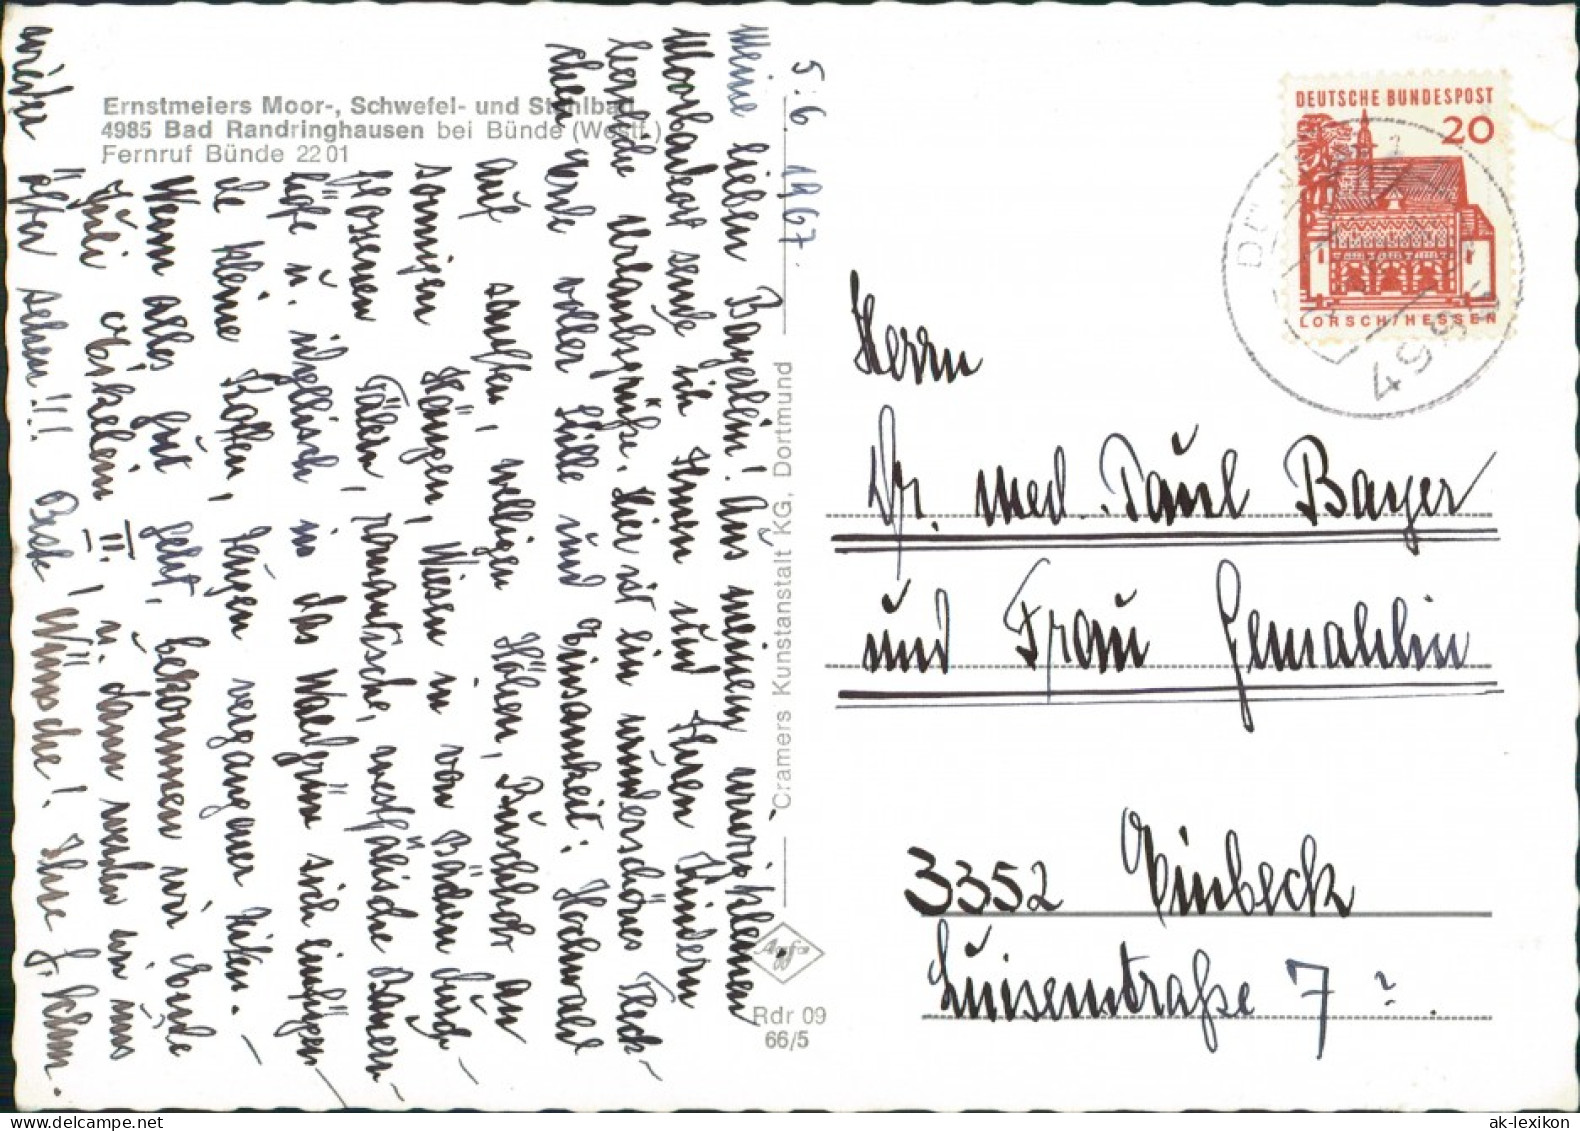 Ernstmeiers Moor-, Schwefel- und Stahlbad
4985 Bad Randringhausen bei Bünde (Westf.)
Fernruf Bünde 22 01
5. 6. 1967.
Meine lieben Bayerlein! Aus meinem winzig kleinen
Moorbadeort sende ich Ihnen und Ihren Kindern
herzliche Urlaubsgrüße. Hier ist ein wunderschönes Fleck-
chen Erde voller Stille und Einsamkeit: Hochwald
auf sanften, welligen Höhen, Buschholz an
sonnigen Hängen, Wiesen in von Bächen durch-
flossenen Tälern, romantische, westfälische Bauern-
höfe u. idyllisch in das Waldgrün sich einfügen-
de kleine Kotten, Zeugen vergangener Zeiten. –
Wenn alles gut geht, bekommen wir Ende
Juli II. u. dann werden wir uns
wieder öfter sehen!!! Beste Wünsche! Ihre
Cramers Kunstanstalt KG, Dortmund
Agfa
Rdr 09
66/5
DEUTSCHE BUNDESPOST
20
LORSCH/HESSEN
Herrn
Dr. med. Paul Bayer
und Frau Gemahlin
3352 Einbeck
Luisenstraße 7 ?
ak-lexikon